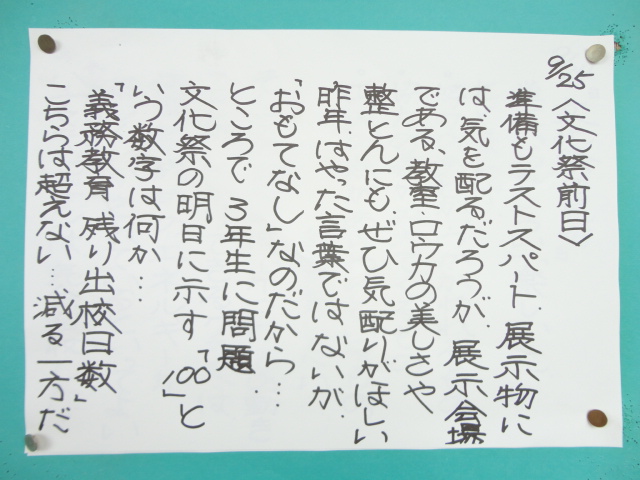 9/25〈文化祭前日〉
準備もラストスパート、展示物に
は、気を配るだろうが、展示会場
である、教室・ロウカの美しさや
整とんにも、ぜひ気配りがほしい
昨年はやった言葉ではないが、
「おもてなし」なのだから…
ところで3年生に問題
文化祭の明日に示す「100」と
いう数字は何か…
「義務教育残り出校日数」
こちらは超えない…減る一方だ